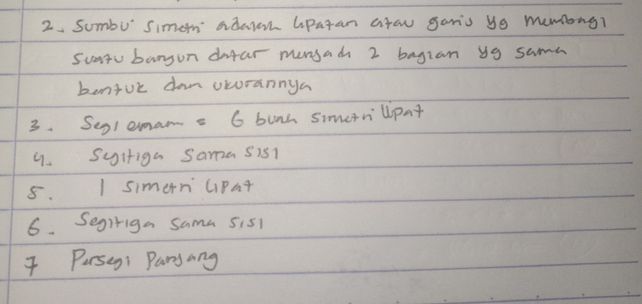 2. Sumbu simetri adalah lipatan atau garis yg membagi
suatu bangun datar menjadi 2 bagian yg sama
bentuk dan ukurannya
3. Segi enam = 6 buah simetri lipat
4. Segitiga sama sisi
5. 1 simetri lipat
6. Segitiga sama sisi
7 Persegi Panjang